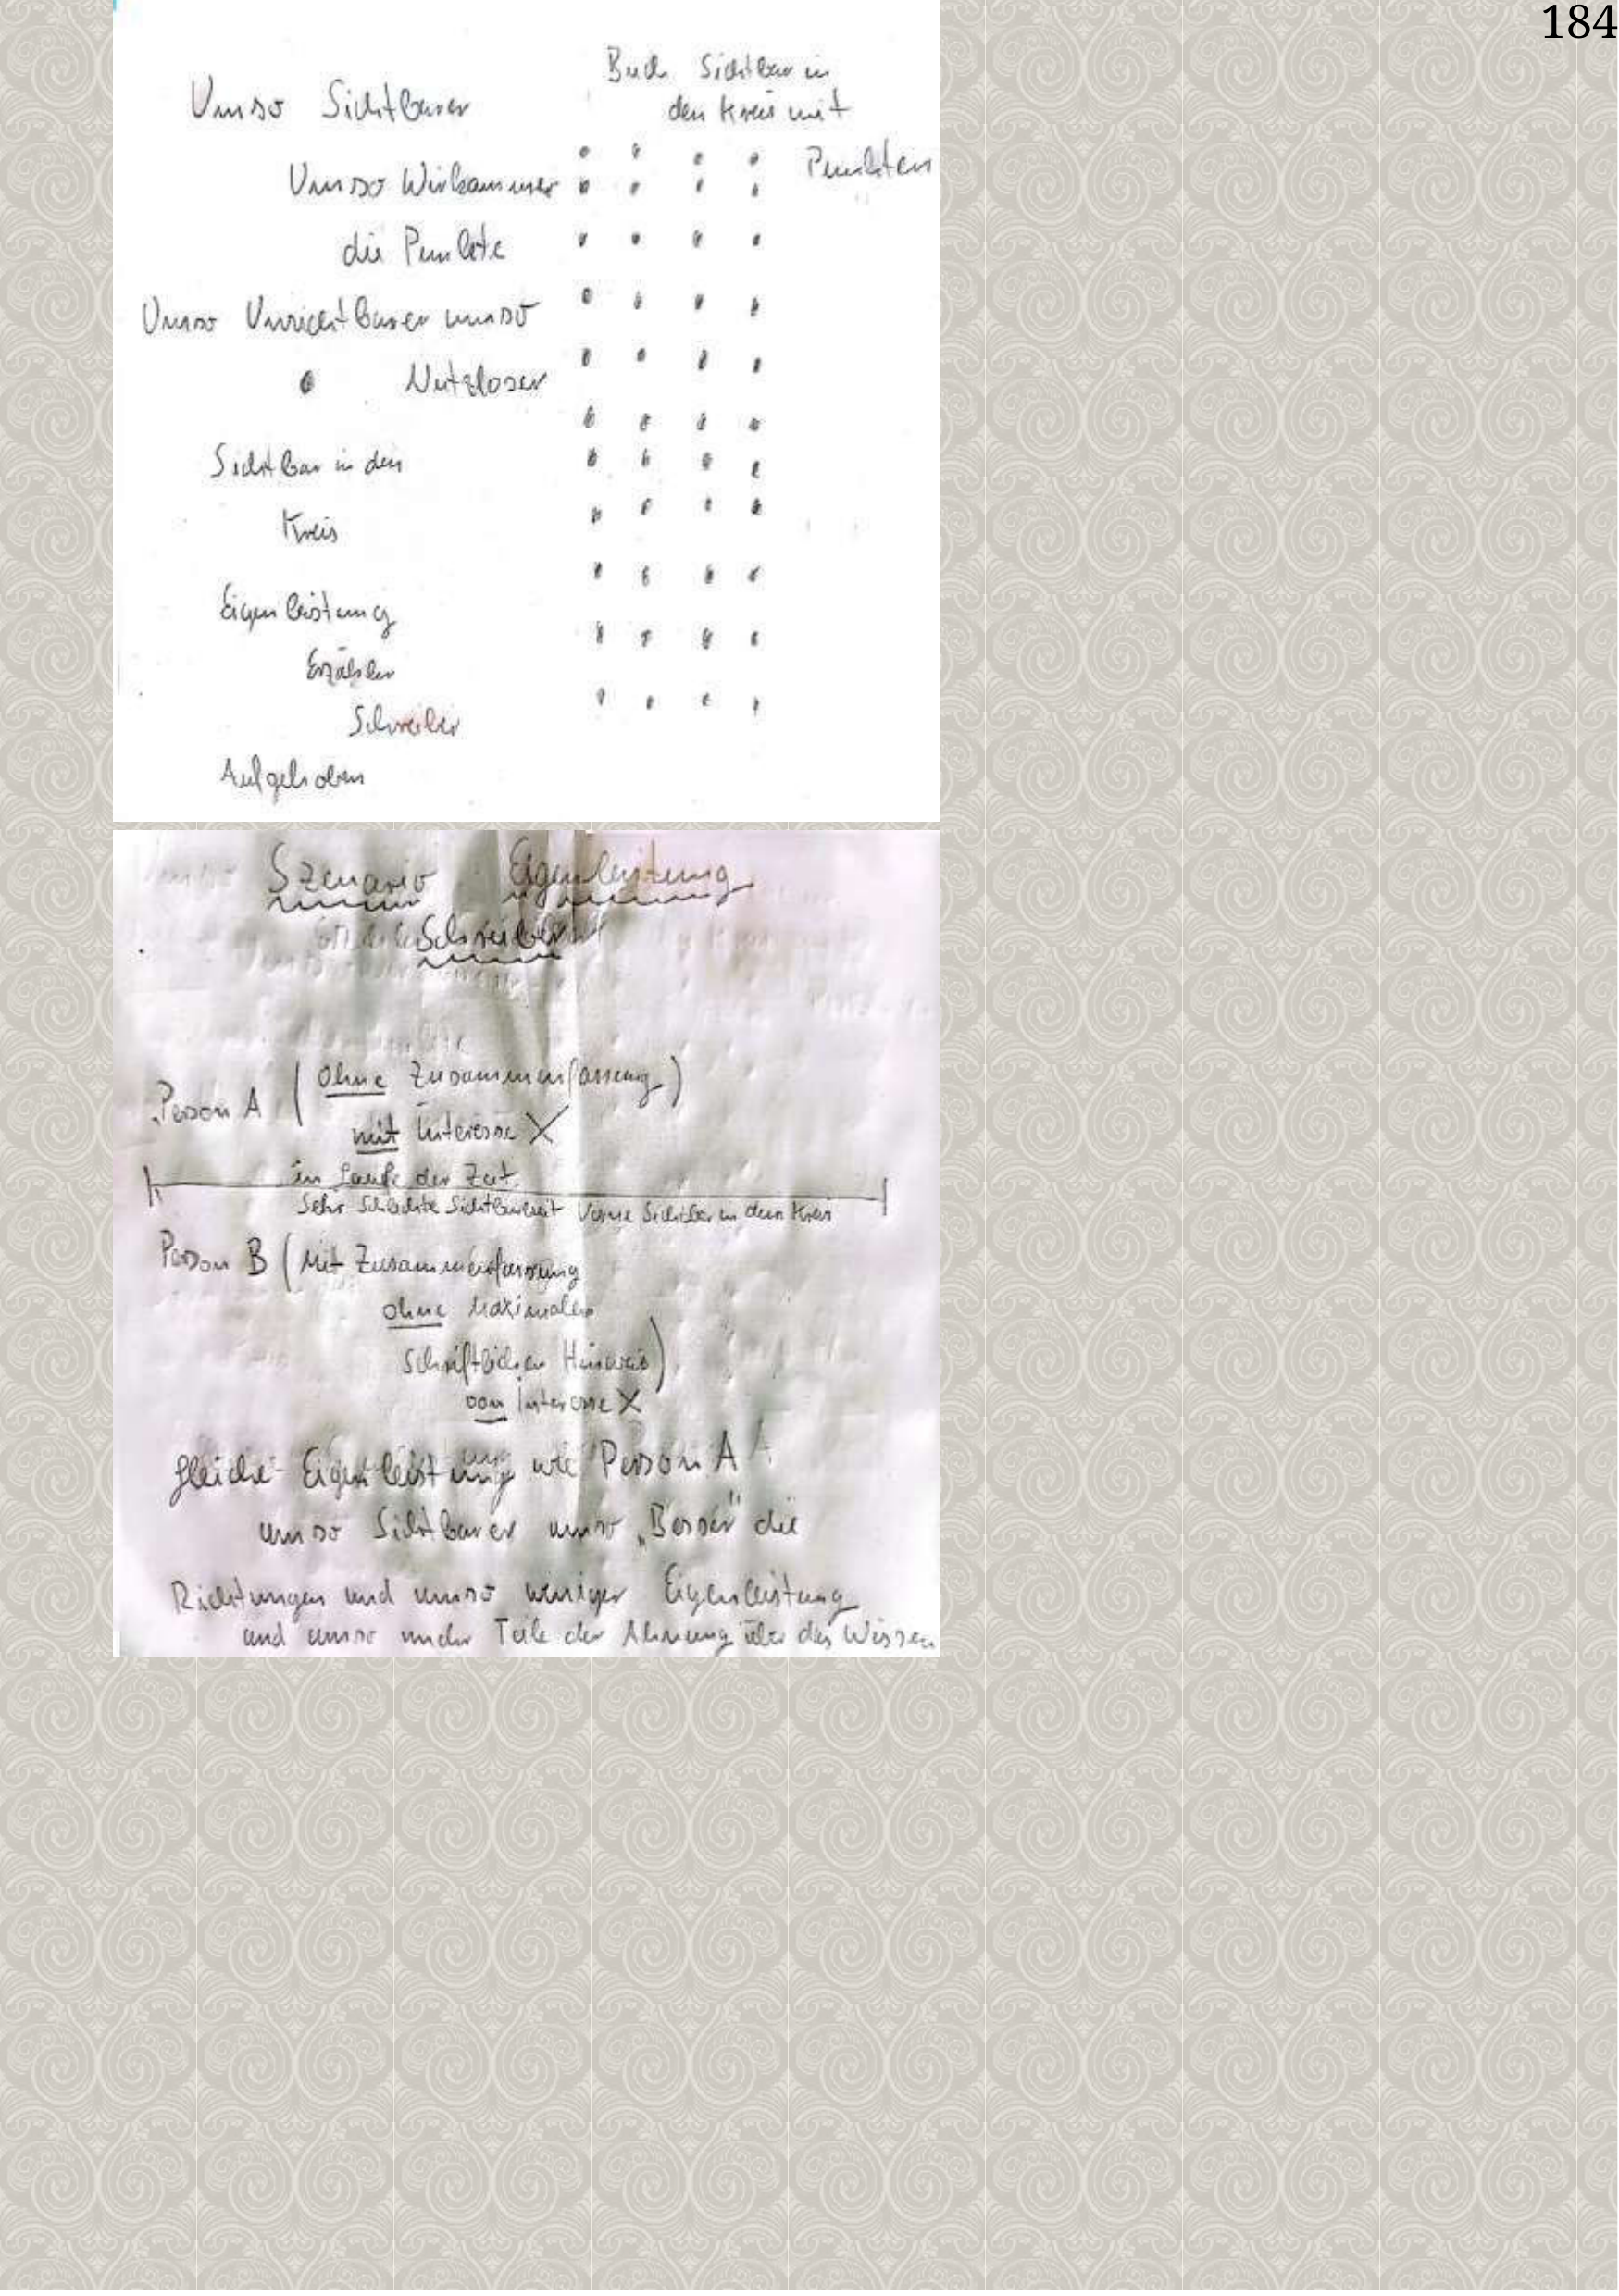 184
Umso Sichtbarer
Buch Sichtbar in
den Kreis mit
Punkten
Umso Wirksammer
die Punkte
Umso Unsichtbarer umso
Nutzloser
Sichtbar in den
Kreis
Eigenleistung
Erzähler
Schreiber
Aufgehoben
Szenario Eigenleistung
Schreiber
Person A (ohne Zusammenfassung)
mit Interesse X
im Laufe der Zeit
Sehr Schlechte Sichtbarkeit Sichtbar in dem Kreis
Person B (Mit Zusammenfassung
ohne Maximalen
Schriftlichen Hinweis)
vom Interesse X
gleiche Eigenleistung wie Person A
umso Sichtbarer umso „Besser" die
Richtungen und umso weniger Eigenleistung
und umso mehr Teile der Ahnung über das Wissen